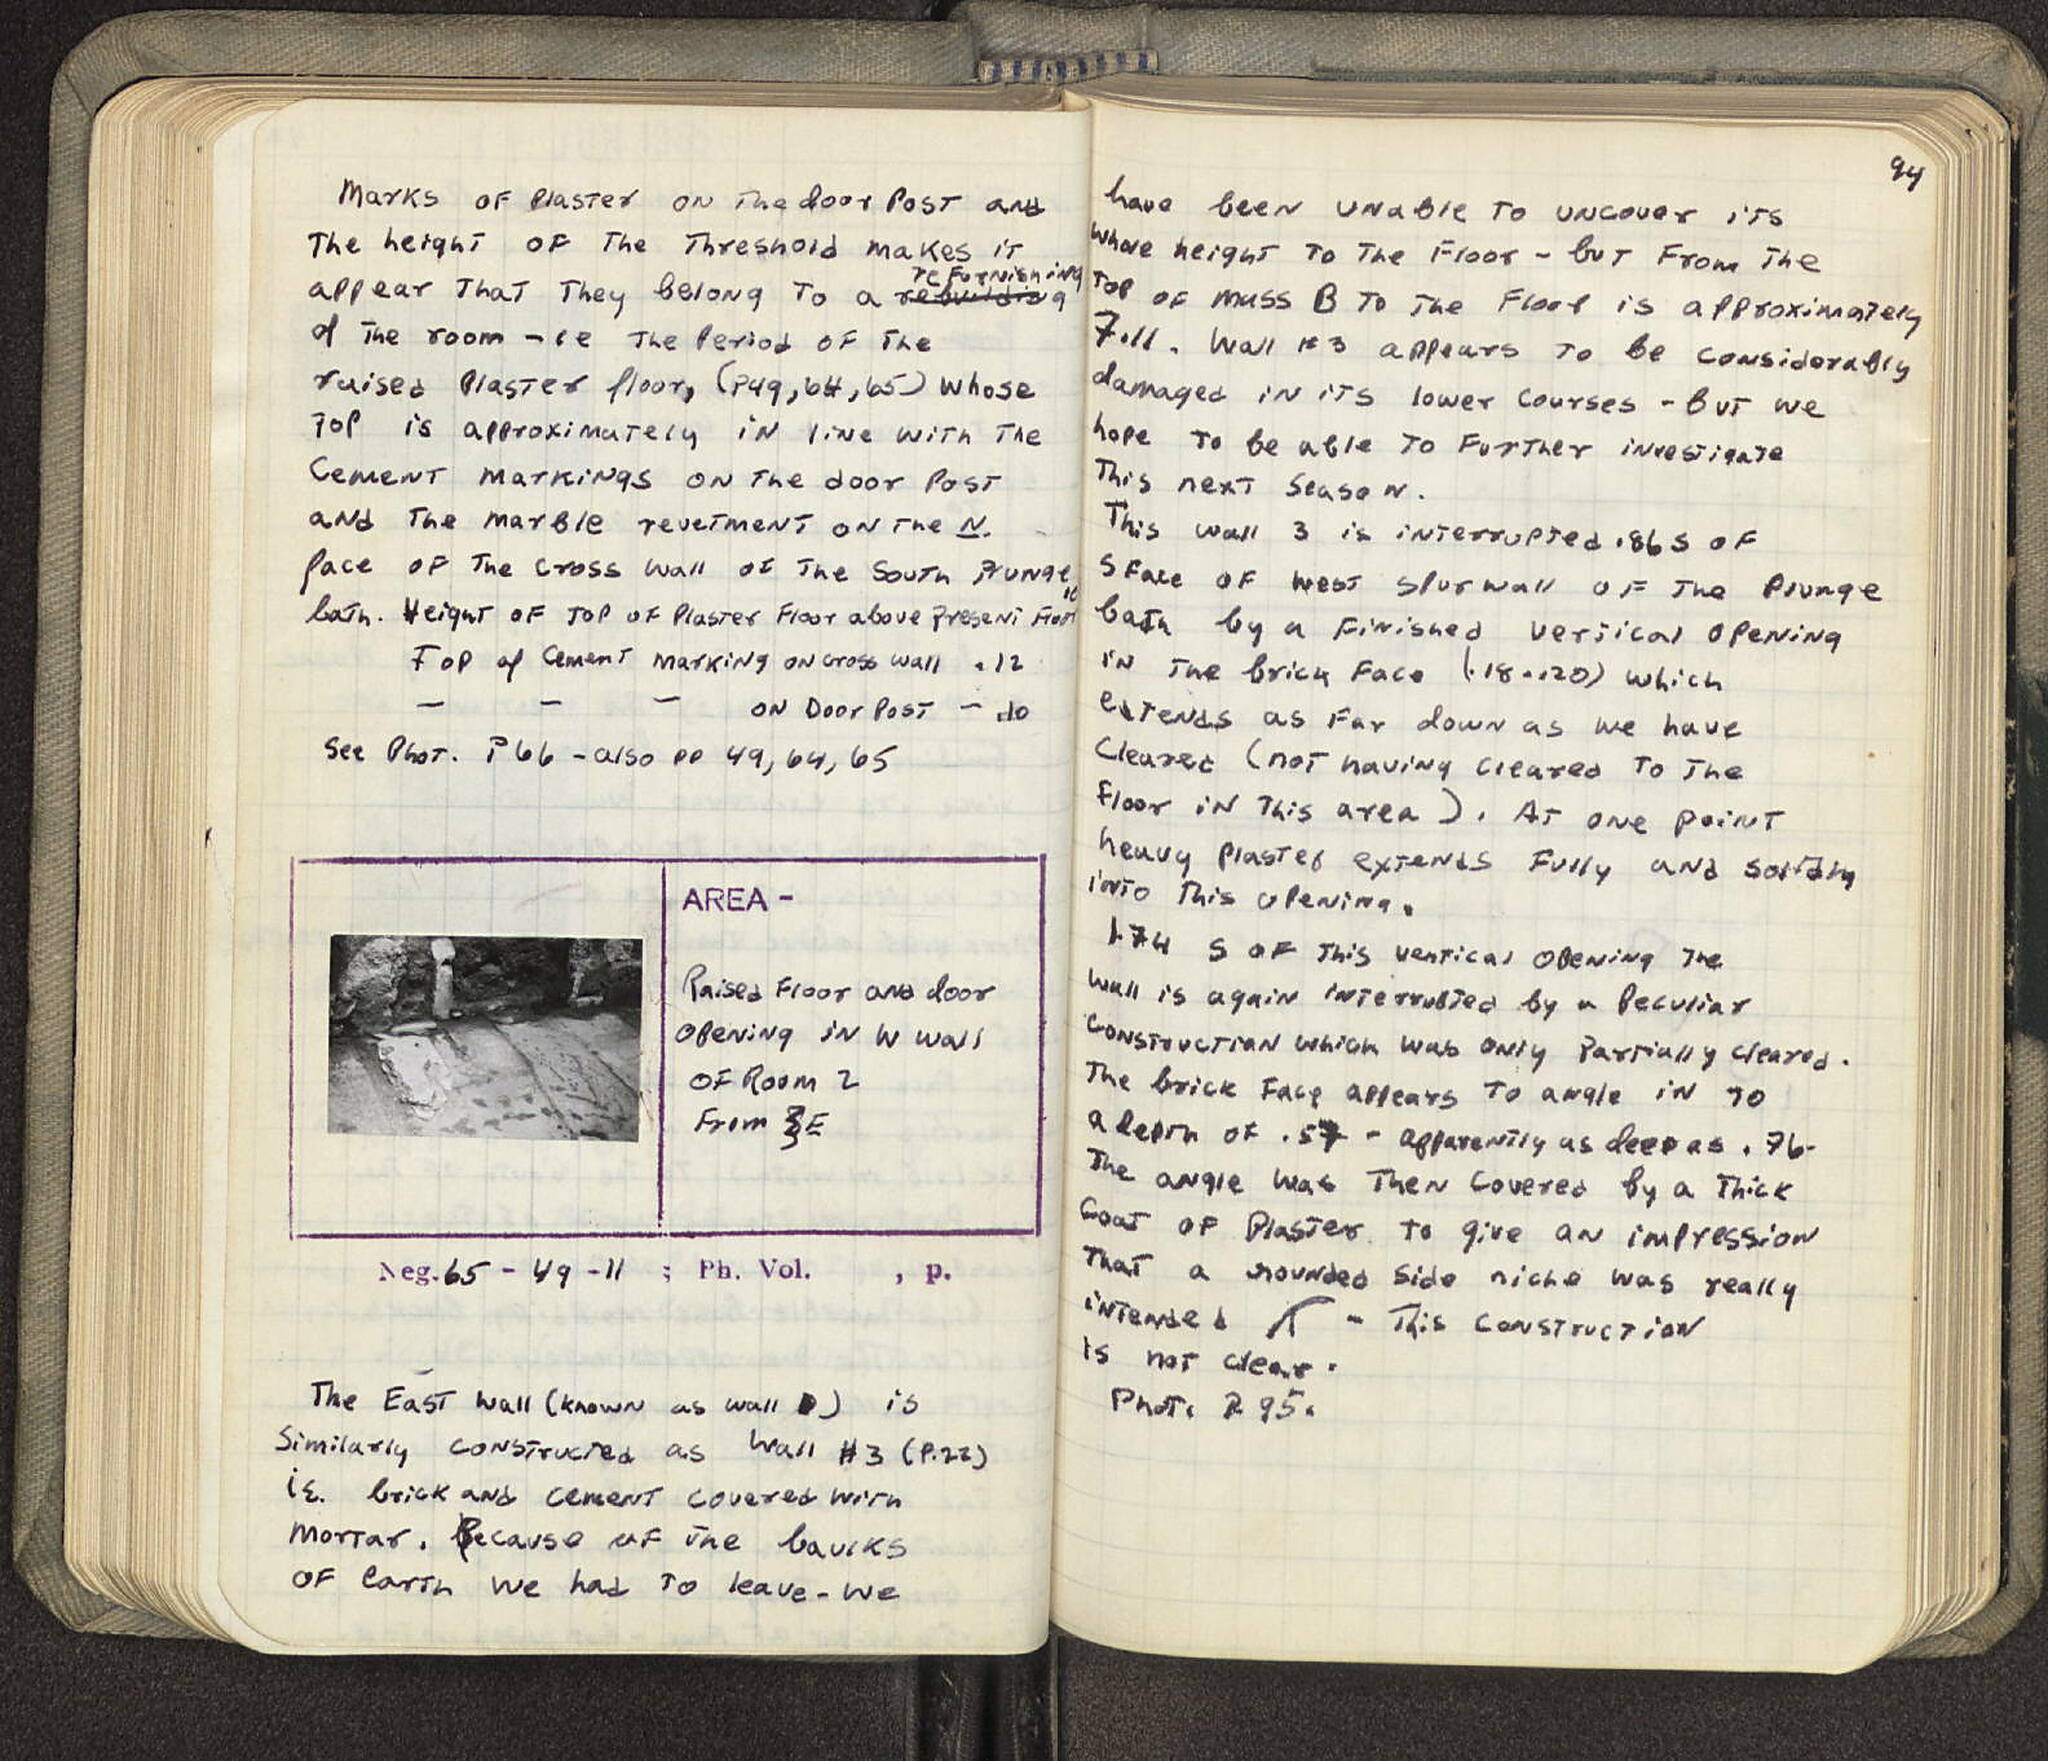 Marks of Plaster on the door Post and
The height of the Threshold makes it
appear that they belong to a rebuilding refurnishing
of the room – ie the Period of the
raised Plaster floor, (P49, 64, 65) whose
Top is approximately in line with the
Cement markings on the door Post
and the marble revetment on the N.
face of the cross wall of the South Plunge
bath. Height of Top of Plaster Floor above Present Floor .10
Top of Cement marking on cross wall .12
– – – on Door Post – .10
See Phot. P 66 – also pp 49, 64, 65
AREA –
Raised Floor and door
opening in W wall
of Room 2
From E
Neg. 65 - 49 - 11 ; Ph. Vol. , p.
The East Wall (known as wall D) is
Similarly constructed as Wall #3 (P.22)
ie. brick and cement covered with
mortar. Because of the baulks
of earth we had to leave – we
94
have been unable to uncover its
whole height to the Floor – but From the
Top of Mass B to the Floor is approximately
7.11. Wall #3 appears to be considerably
damaged in its lower courses – but we
hope to be able to Further investigate
This next Season.
This wall 3 is interrupted .86 S of
S Face of West Spur wall of the Plunge
bath by a Finished vertical opening
in the brick Face (.18-.20) which
extends as Far down as we have
Cleared (not having cleared to the
Floor in this area). At one point
heavy Plaster extends Fully and solidly
into this opening.
1.74 S of this vertical opening the
wall is again interrupted by a Peculiar
Construction which was only Partially cleared.
The brick Face appears to angle in to
a depth of .57 – apparently as deep as .76-
The angle was then covered by a thick
Coat of Plaster to give an impression
That a rounded side niche was really
intended – This construction
is not clear.
Phot. P 95.